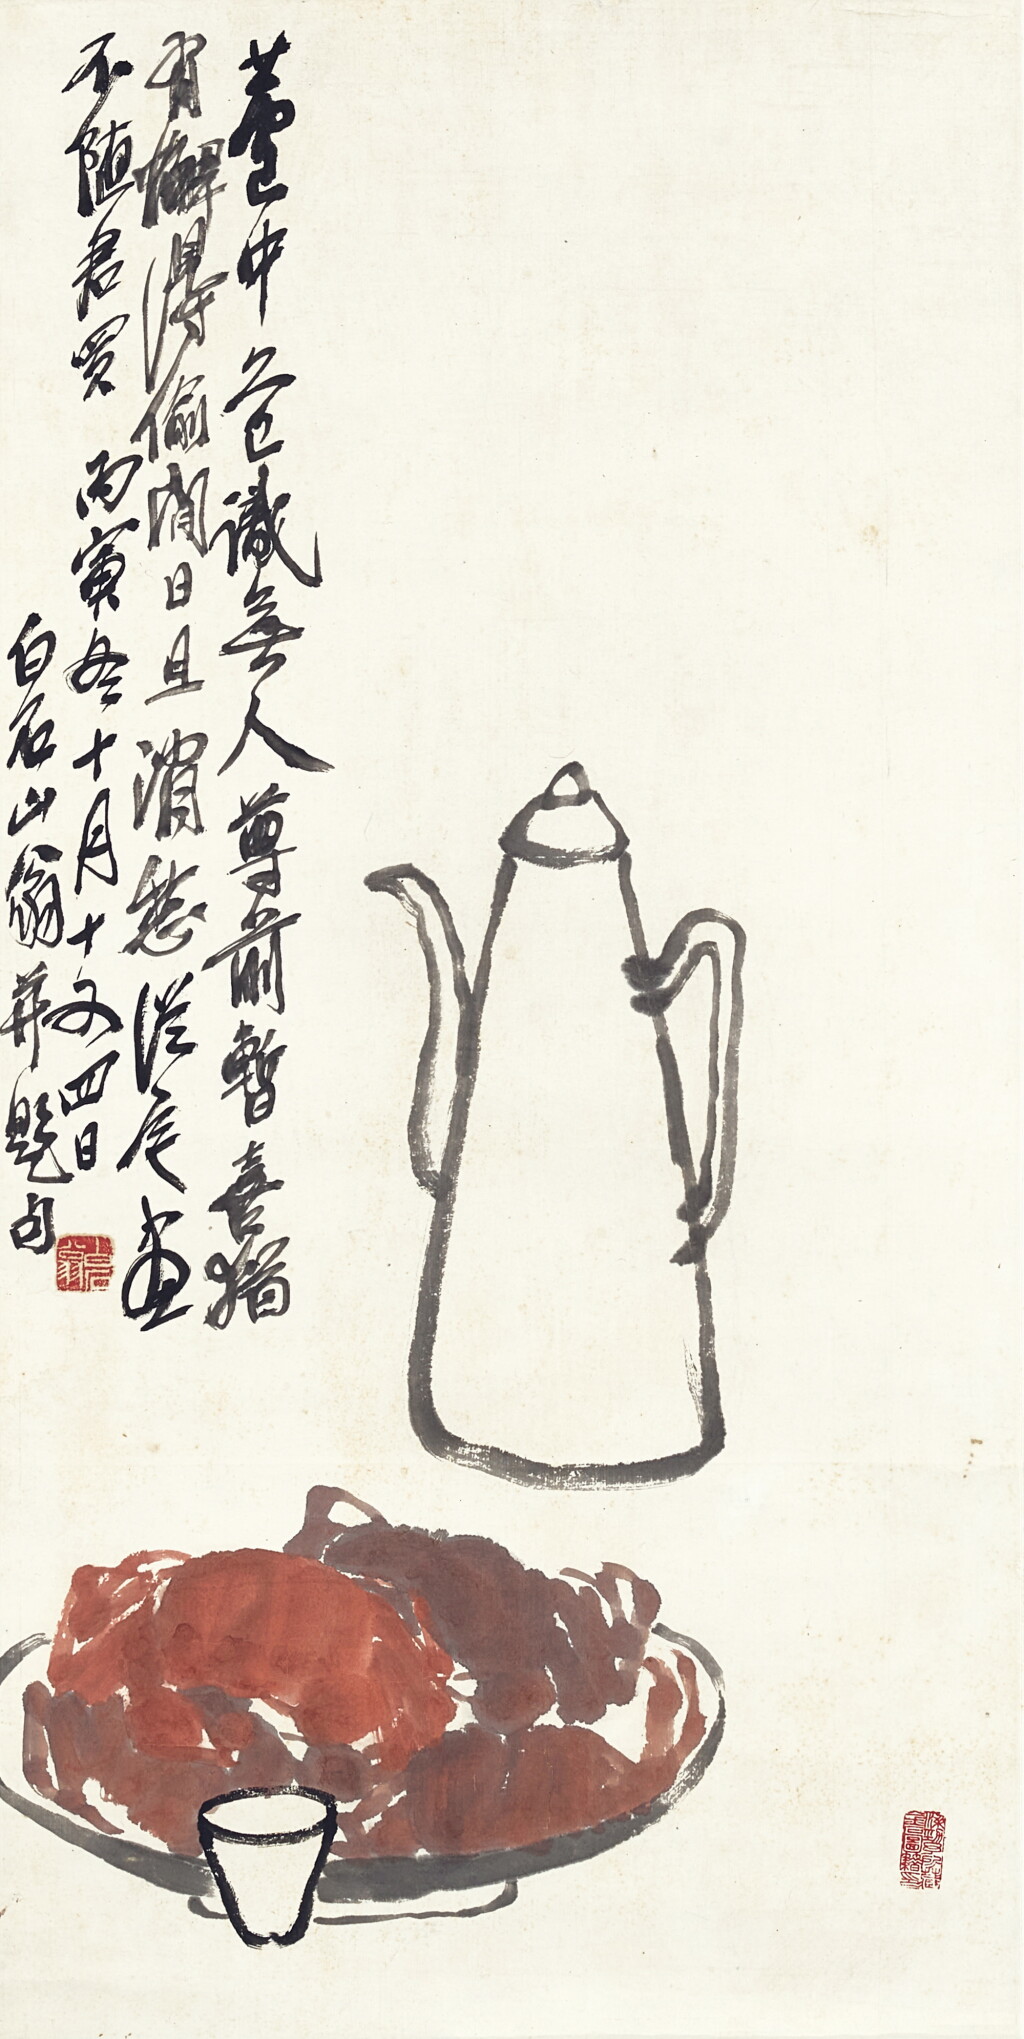 蘆中久已識無人尊前暫喜猶
有蠏得偷閒日且消愁從畫
不隨君買 丙寅冬十月十又四日
白石山翁并題句